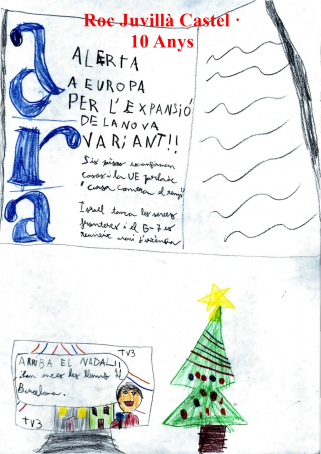 Roc Juvillà Castel ·
10 Anys
ara
ALERTA
A EUROPA
PER L'EXPANSIÓ
DE LA NOVA
VARIANT!!
Sis països
casos i la UE parla de
"cursa contra el temps"
Israel tanca les seves
fronteres i el G-7 es
reuneix
TV3
ARRIBA EL NADAL!!
S'han encès les llums de
Barcelona.
TV3